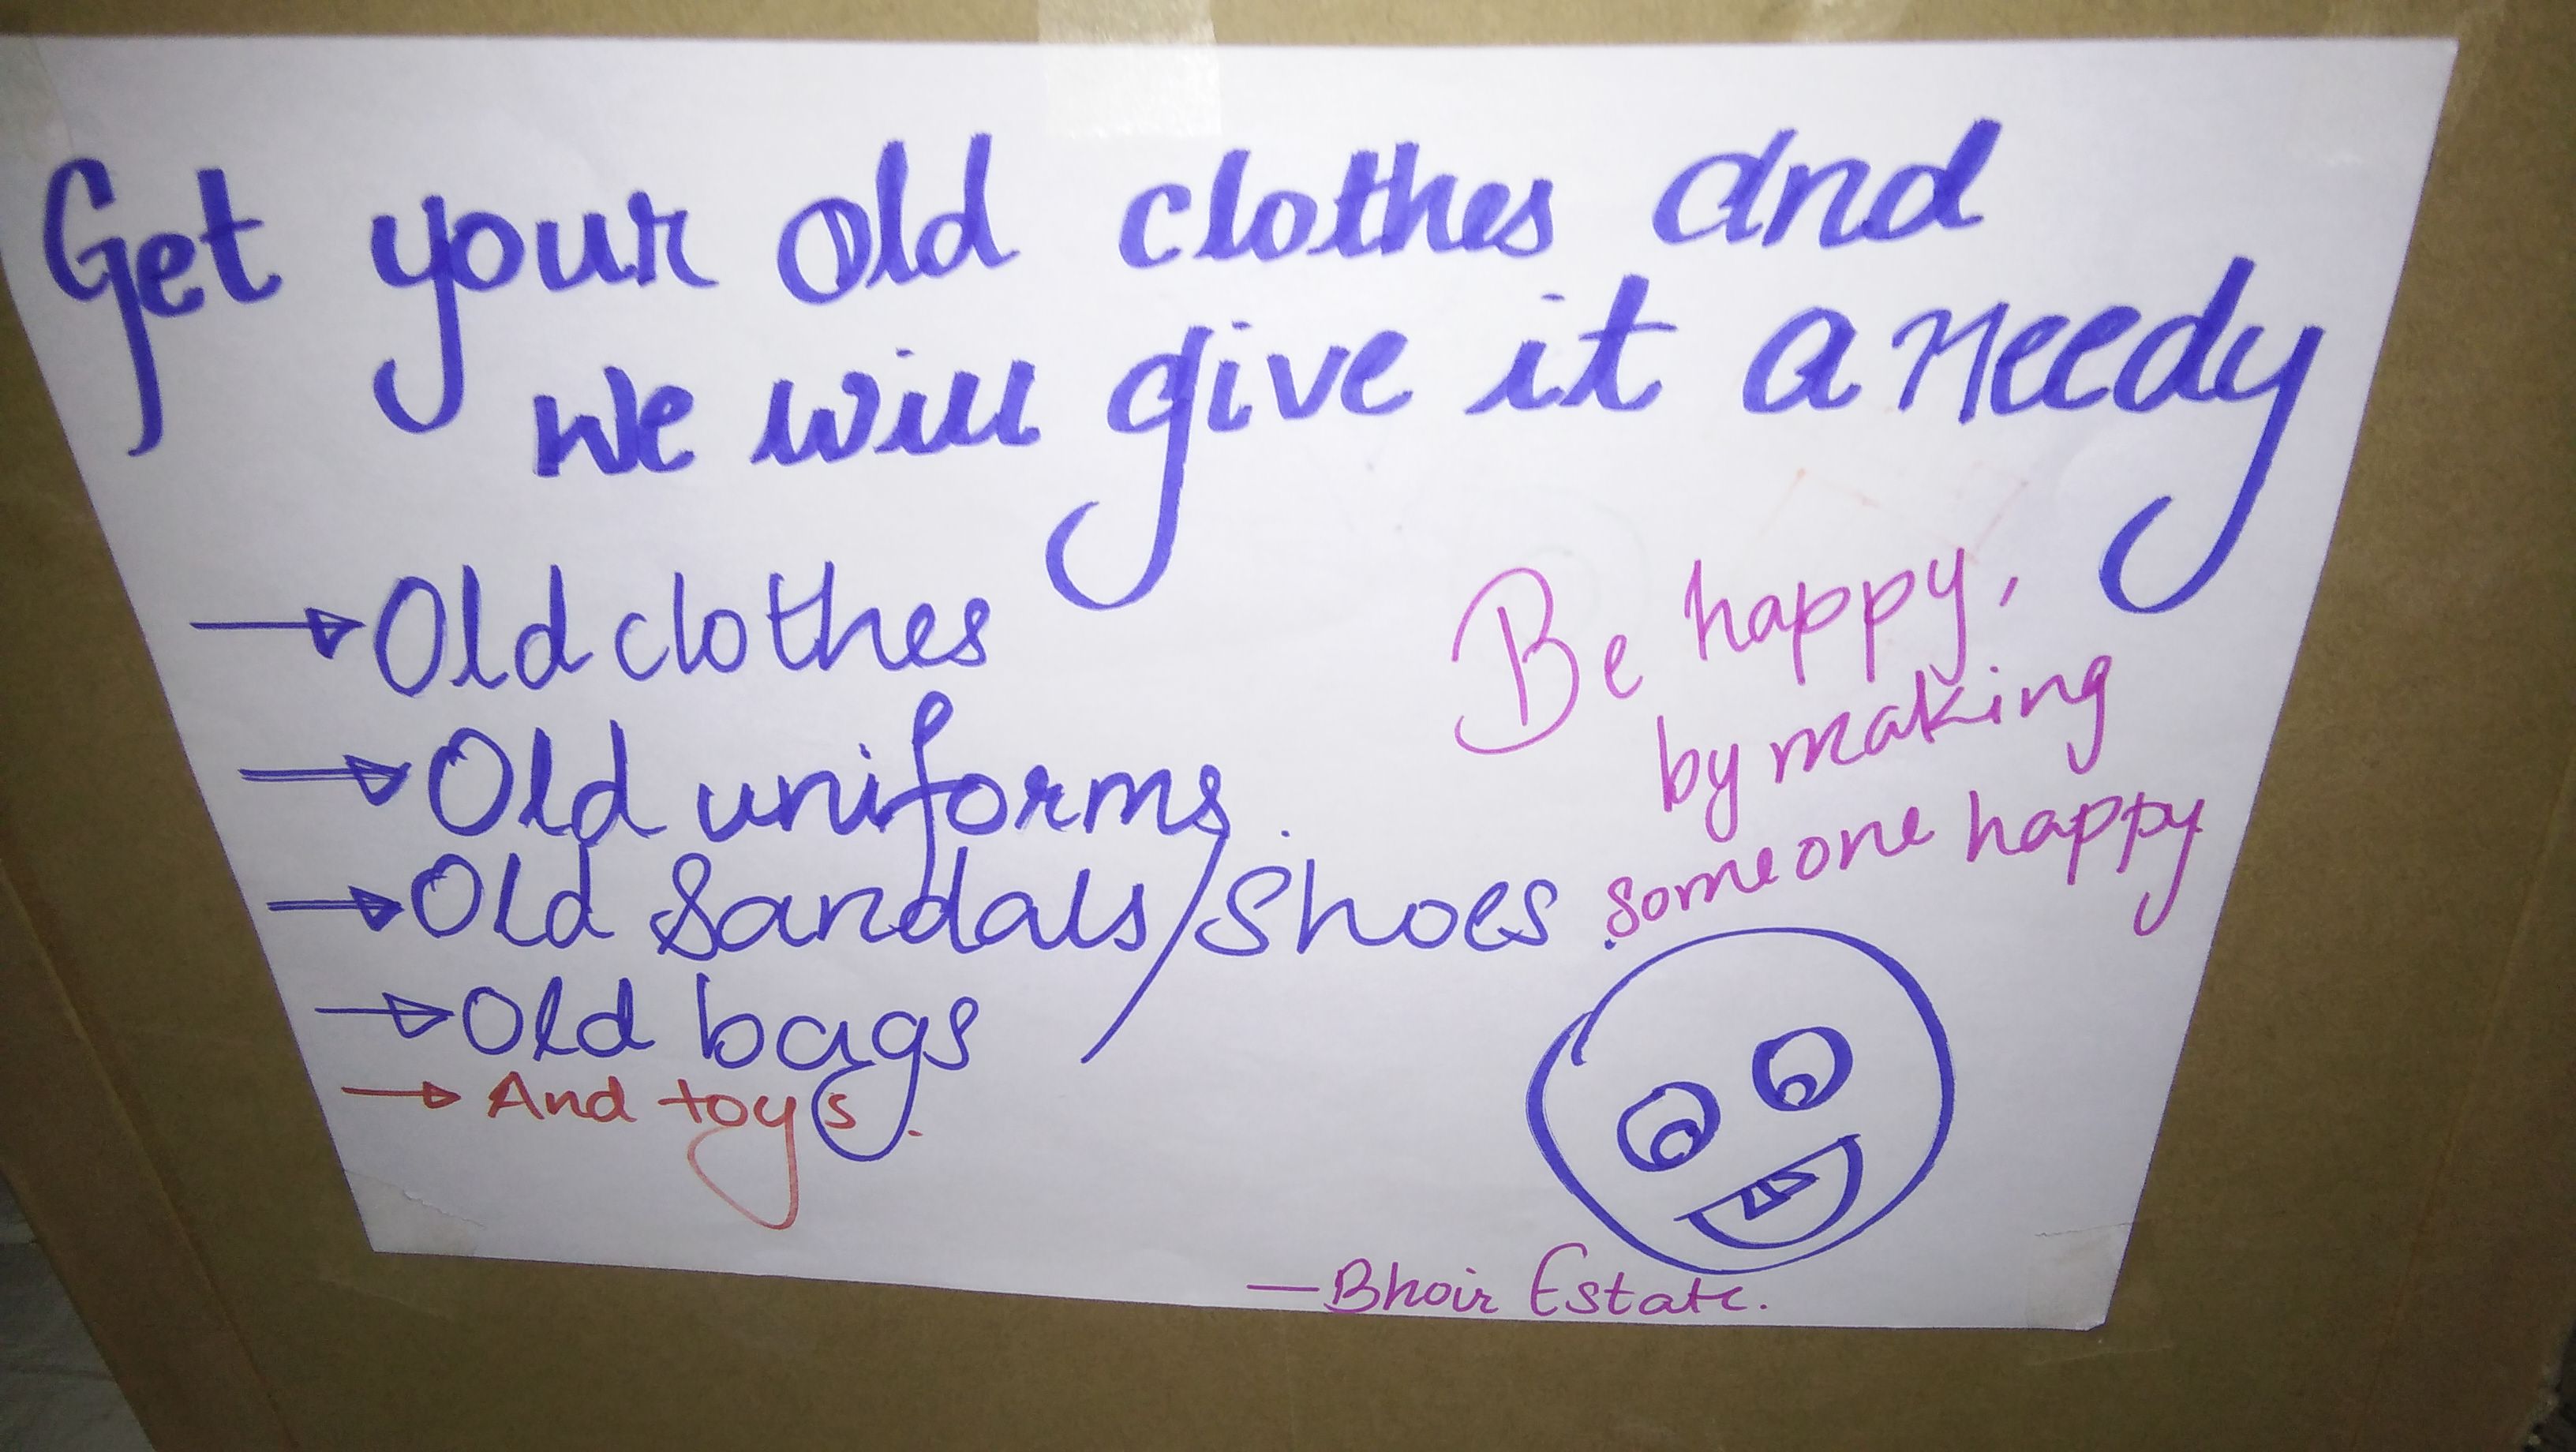 Get your old clothes and
we will give it a needy
Old clothes
Old uniforms.
Old Sandals/Shoes.
Old bags
And toys.
Be happy,
by making
someone happy
—Bhoir Estate.